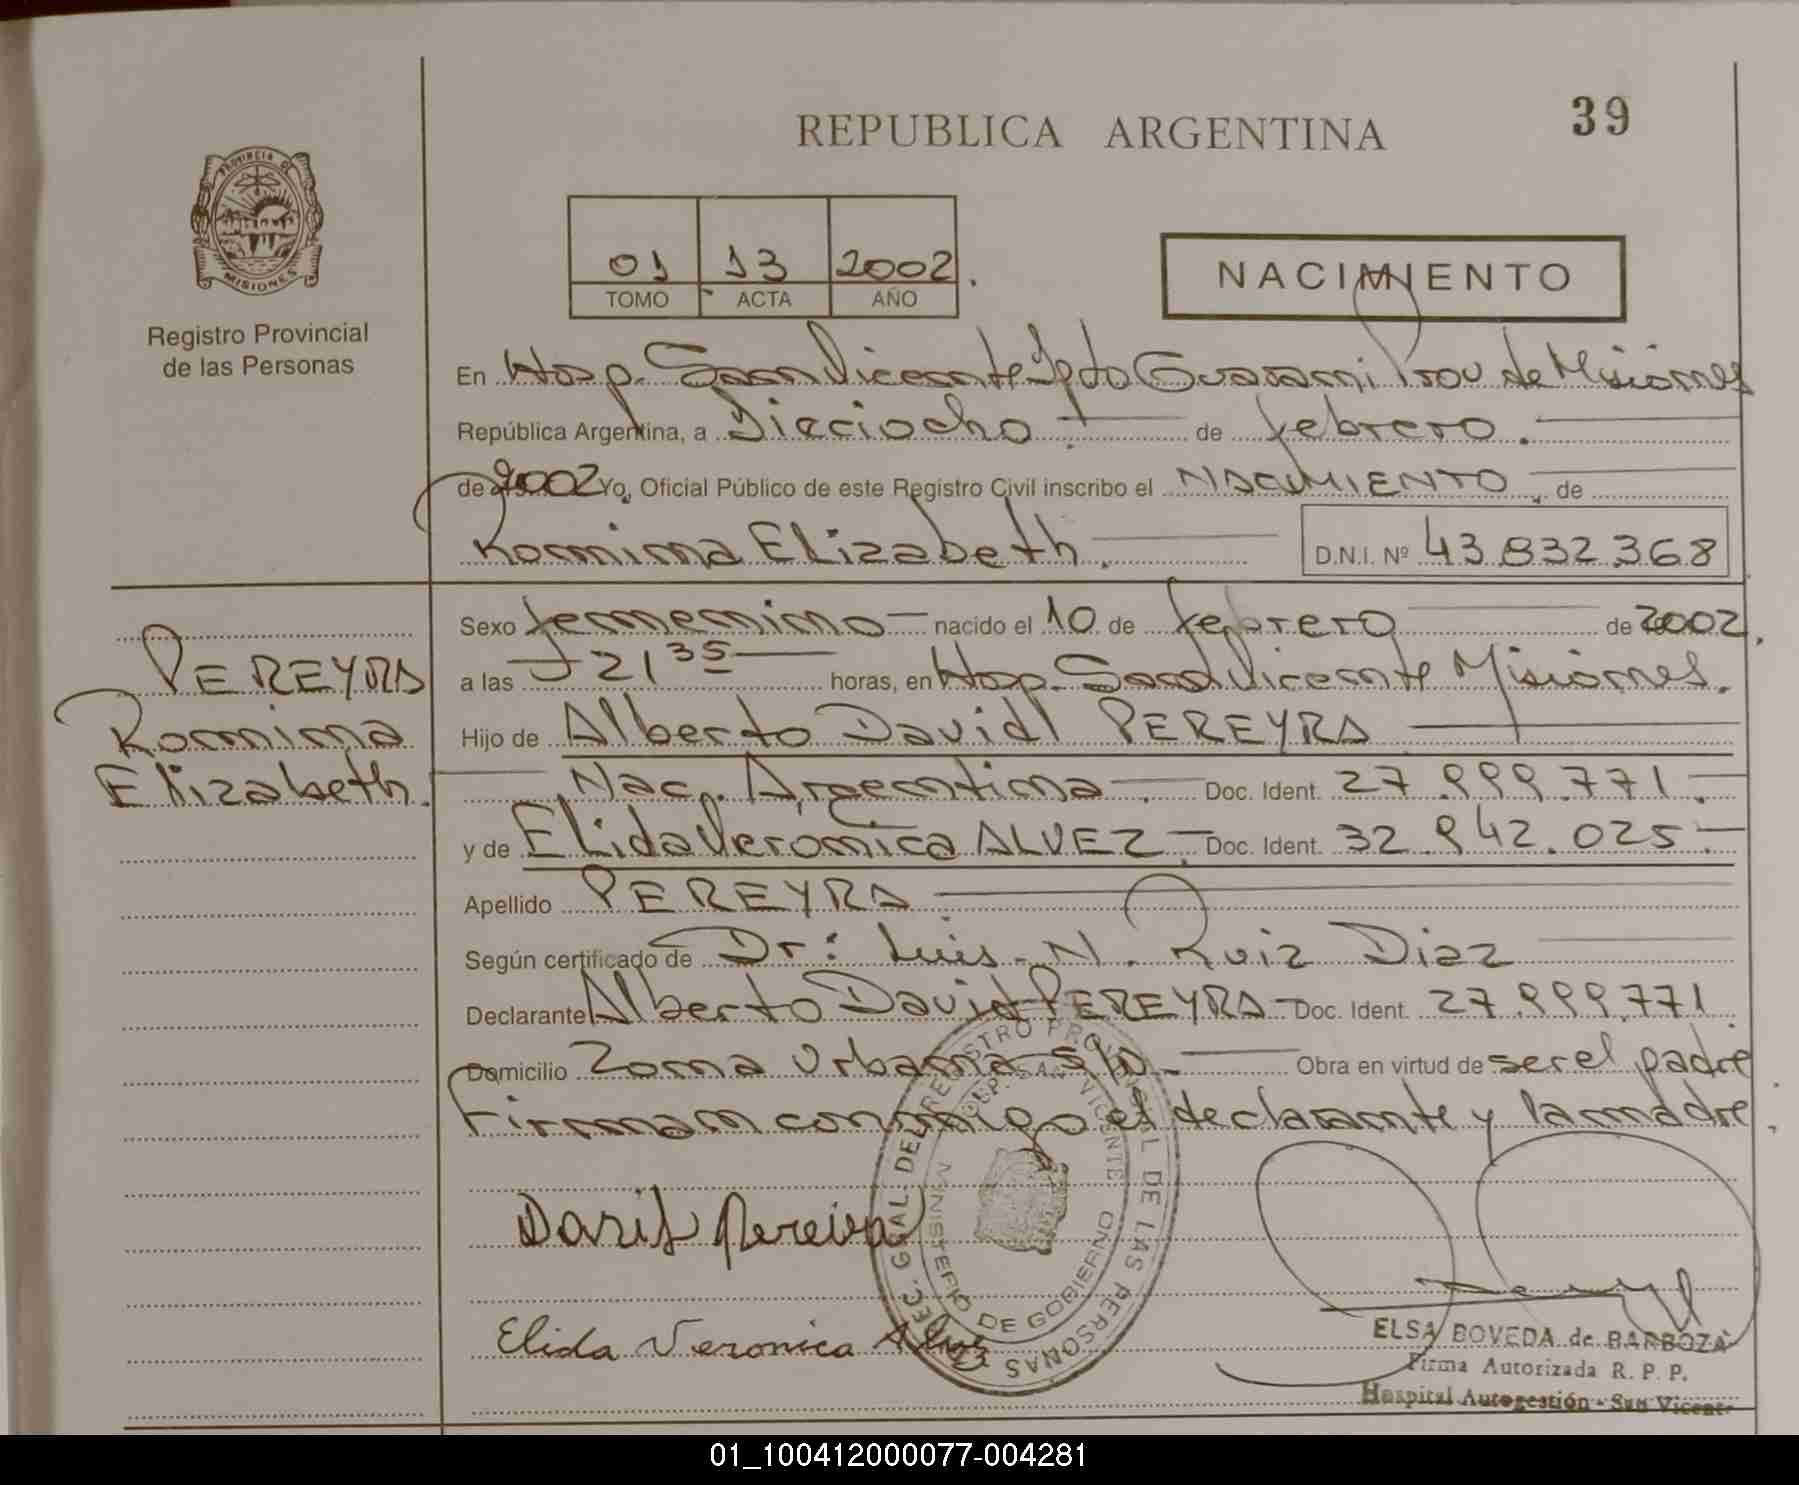 REPUBLICA ARGENTINA
39
PROVINCIA DE MISIONES
Registro Provincial
de las Personas
01 13 2002
TOMO ACTA AÑO
NACIMIENTO
En Hosp. San Vicente Dpto Guarani Prov de Misiones
República Argentina, a Dieciocho de febrero
de 2002 Yo, Oficial Público de este Registro Civil inscribo el NACIMIENTO de
Romina Elizabeth. D.N.I. Nº 43.832.368
PEREYRA
Romina
Elizabeth.
Sexo femenino nacido el 10 de febrero de 2002.
a las 21 35 horas, en Hosp. San Vicente Misiones.
Hijo de Alberto David PEREYRA
Nac. Argentina Doc. Ident. 27.999.771.
y de Elida Veronica ALVEZ Doc. Ident. 32.942.025
Apellido PEREYRA
Según certificado de Dr: Luis N. Ruiz Diaz
Declarante Alberto David PEREYRA Doc. Ident. 27.999.771
Domicilio Zona Urbana s/n Obra en virtud de ser el padre
Firman conmigo el declarante y la madre.
DIREC. GRAL. DEL REGISTRO PROVINCIAL DE LAS PERSONAS
SAN VICENTE
MINISTERIO DE GOBIERNO
Pereira
Elida Veronica Alvez
ELSA BOVEDA de BARBOZA
Firma Autorizada R. P. P.
Hospital Autogestión - San Vicente
01_100412000077-004281